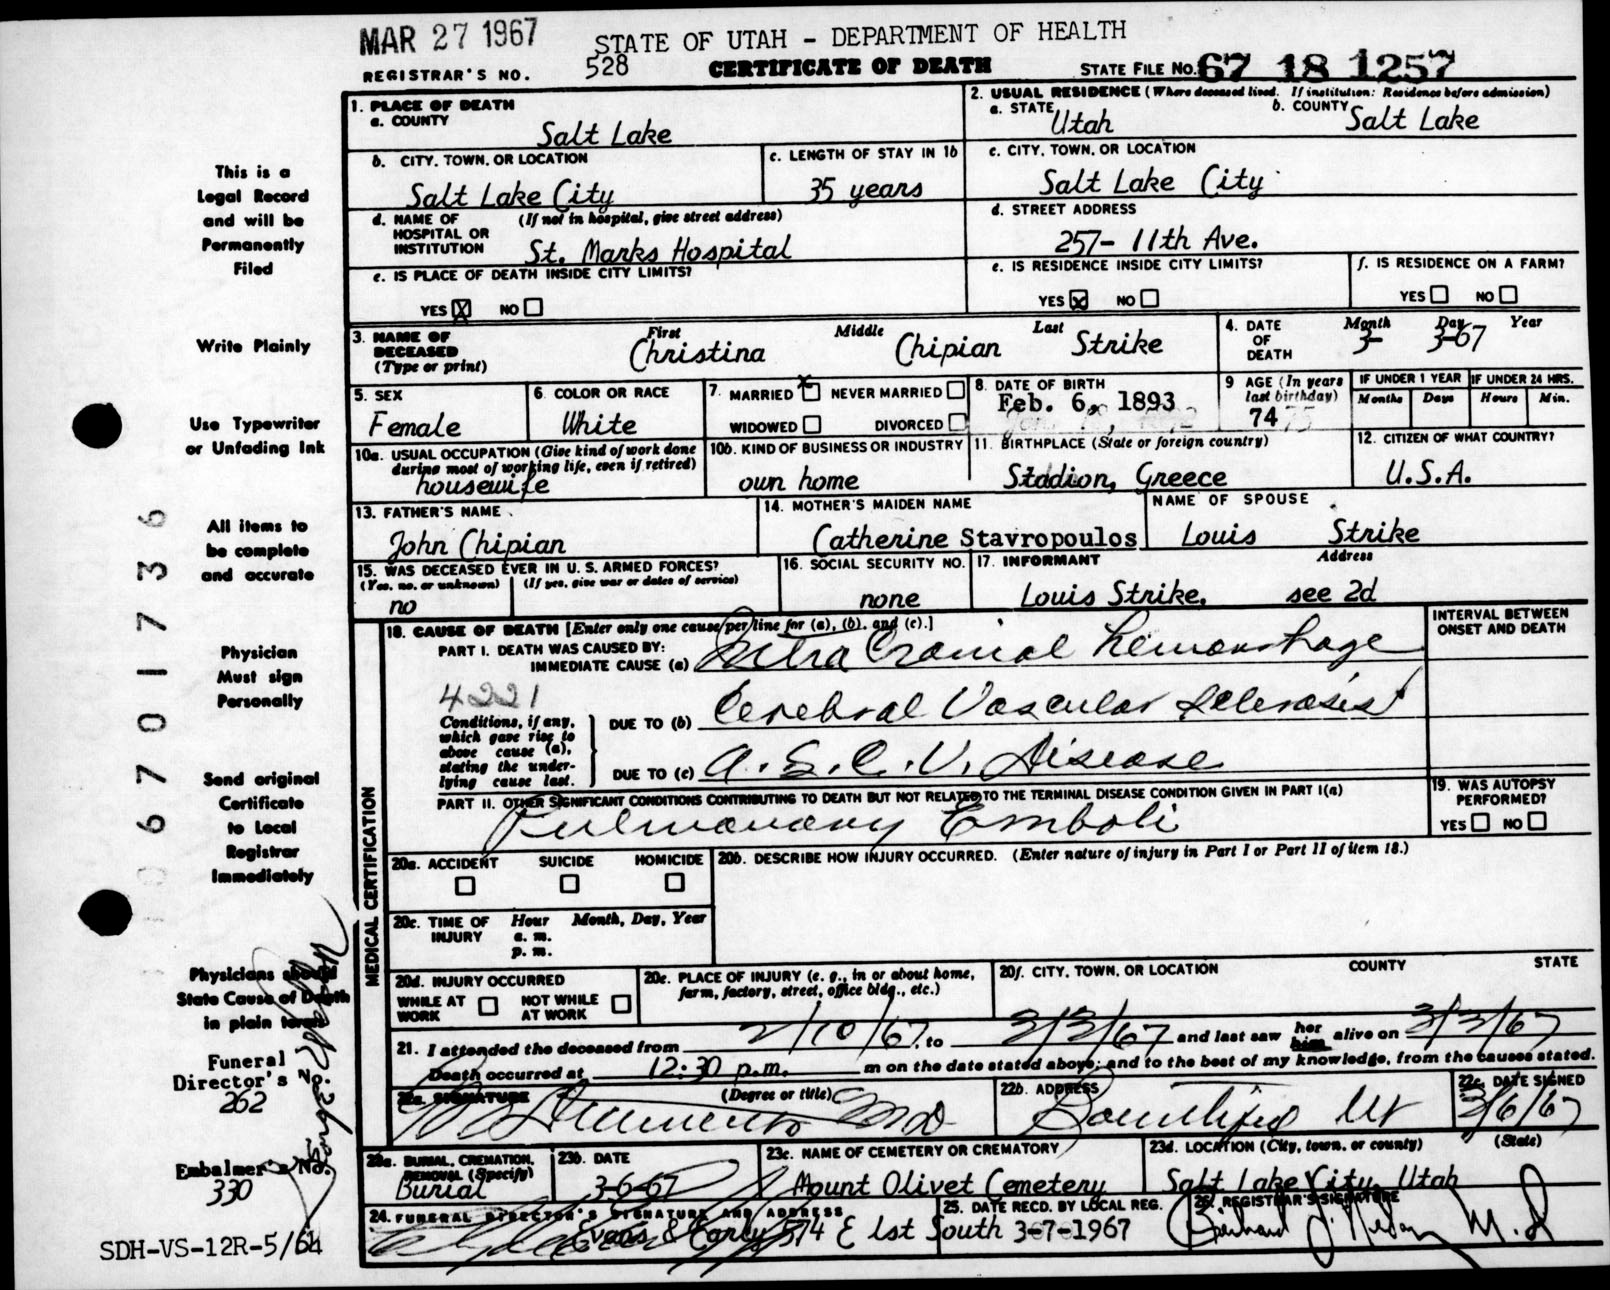 MAR 27 1967
STATE OF UTAH - DEPARTMENT OF HEALTH
REGISTRAR'S NO. 528 CERTIFICATE OF DEATH STATE FILE NO. 67 18 1257
1. PLACE OF DEATH
a. COUNTY
Salt Lake
2. USUAL RESIDENCE (Where deceased lived. If institution: Residence before admission)
a. STATE Utah b. COUNTY Salt Lake
b. CITY, TOWN, OR LOCATION
Salt Lake City
c. LENGTH OF STAY IN 1b
35 years
c. CITY, TOWN, OR LOCATION
Salt Lake City
d. NAME OF HOSPITAL OR INSTITUTION (If not in hospital, give street address)
St. Marks Hospital
d. STREET ADDRESS
257- 11th Ave.
e. IS PLACE OF DEATH INSIDE CITY LIMITS?
YES X NO
e. IS RESIDENCE INSIDE CITY LIMITS?
YES X NO
f. IS RESIDENCE ON A FARM?
YES NO
3. NAME OF DECEASED (Type or print)
First Middle Last
Christina Chipian Strike
4. DATE OF DEATH
Month Day Year
3- 3-67
5. SEX
Female
6. COLOR OR RACE
White
7. MARRIED X NEVER MARRIED
WIDOWED DIVORCED
8. DATE OF BIRTH
Feb. 6, 1893
9 AGE (In years last birthday)
74
IF UNDER 1 YEAR
Months Days
IF UNDER 24 HRS.
Hours Min.
10a. USUAL OCCUPATION (Give kind of work done during most of working life, even if retired)
housewife
10b. KIND OF BUSINESS OR INDUSTRY
own home
11. BIRTHPLACE (State or foreign country)
Stadion, Greece
12. CITIZEN OF WHAT COUNTRY?
U.S.A.
13. FATHER'S NAME
John Chipian
14. MOTHER'S MAIDEN NAME
Catherine Stavropoulos
NAME OF SPOUSE
Louis Strike
15. WAS DECEASED EVER IN U. S. ARMED FORCES?
(Yes, no, or unknown) (If yes, give war or dates of service)
no
16. SOCIAL SECURITY NO.
none
17. INFORMANT Address
Louis Strike, see 2d
MEDICAL CERTIFICATION
18. CAUSE OF DEATH [Enter only one cause per line for (a), (b), and (c).]
INTERVAL BETWEEN ONSET AND DEATH
PART I. DEATH WAS CAUSED BY:
IMMEDIATE CAUSE (a) Intra Cranial hemorrhage
4221
Conditions, if any, which gave rise to above cause (a), stating the underlying cause last.
DUE TO (b) Cerebral Vascular Sclerosis
DUE TO (c) A. S. C. V. Disease
PART II. OTHER SIGNIFICANT CONDITIONS CONTRIBUTING TO DEATH BUT NOT RELATED TO THE TERMINAL DISEASE CONDITION GIVEN IN PART I(a)
Pulmonary Emboli
19. WAS AUTOPSY PERFORMED?
YES NO
20a. ACCIDENT SUICIDE HOMICIDE
20b. DESCRIBE HOW INJURY OCCURRED. (Enter nature of injury in Part I or Part II of item 18.)
20c. TIME OF INJURY Hour Month, Day, Year
a. m.
p. m.
20d. INJURY OCCURRED
WHILE AT WORK NOT WHILE AT WORK
20e. PLACE OF INJURY (e. g., in or about home, farm, factory, street, office bldg., etc.)
20f. CITY, TOWN, OR LOCATION COUNTY STATE
21. I attended the deceased from 2/10/67, to 3/3/67 and last saw her him alive on 3/3/67
Death occurred at 12:30 p.m. m on the date stated above; and to the best of my knowledge, from the causes stated.
22a. SIGNATURE (Degree or title)
MD
22b. ADDRESS
Bountiful Ut
22c. DATE SIGNED
3/6/67
23a. BURIAL, CREMATION, REMOVAL (Specify)
Burial
23b. DATE
3-6-67
23c. NAME OF CEMETERY OR CREMATORY
Mount Olivet Cemetery
23d. LOCATION (City, town, or county) (State)
Salt Lake City, Utah
24. FUNERAL DIRECTOR'S SIGNATURE AND ADDRESS
Evans & Early 574 E 1st South
25. DATE RECD. BY LOCAL REG.
3-7-1967
26. REGISTRAR'S SIGNATURE
M.D
This is a
Legal Record
and will be
Permanently
Filed
Write Plainly
Use Typewriter
or Unfading Ink
All items to
be complete
and accurate
Physician
Must sign
Personally
Send original
Certificate
to Local
Registrar
Immediately
Physicians should
State Cause of Death
in plain terms
Funeral
Director's No.
262
Embalmer's No.
330
SDH-VS-12R-5/64
0 6 7 0 1 7 3 6